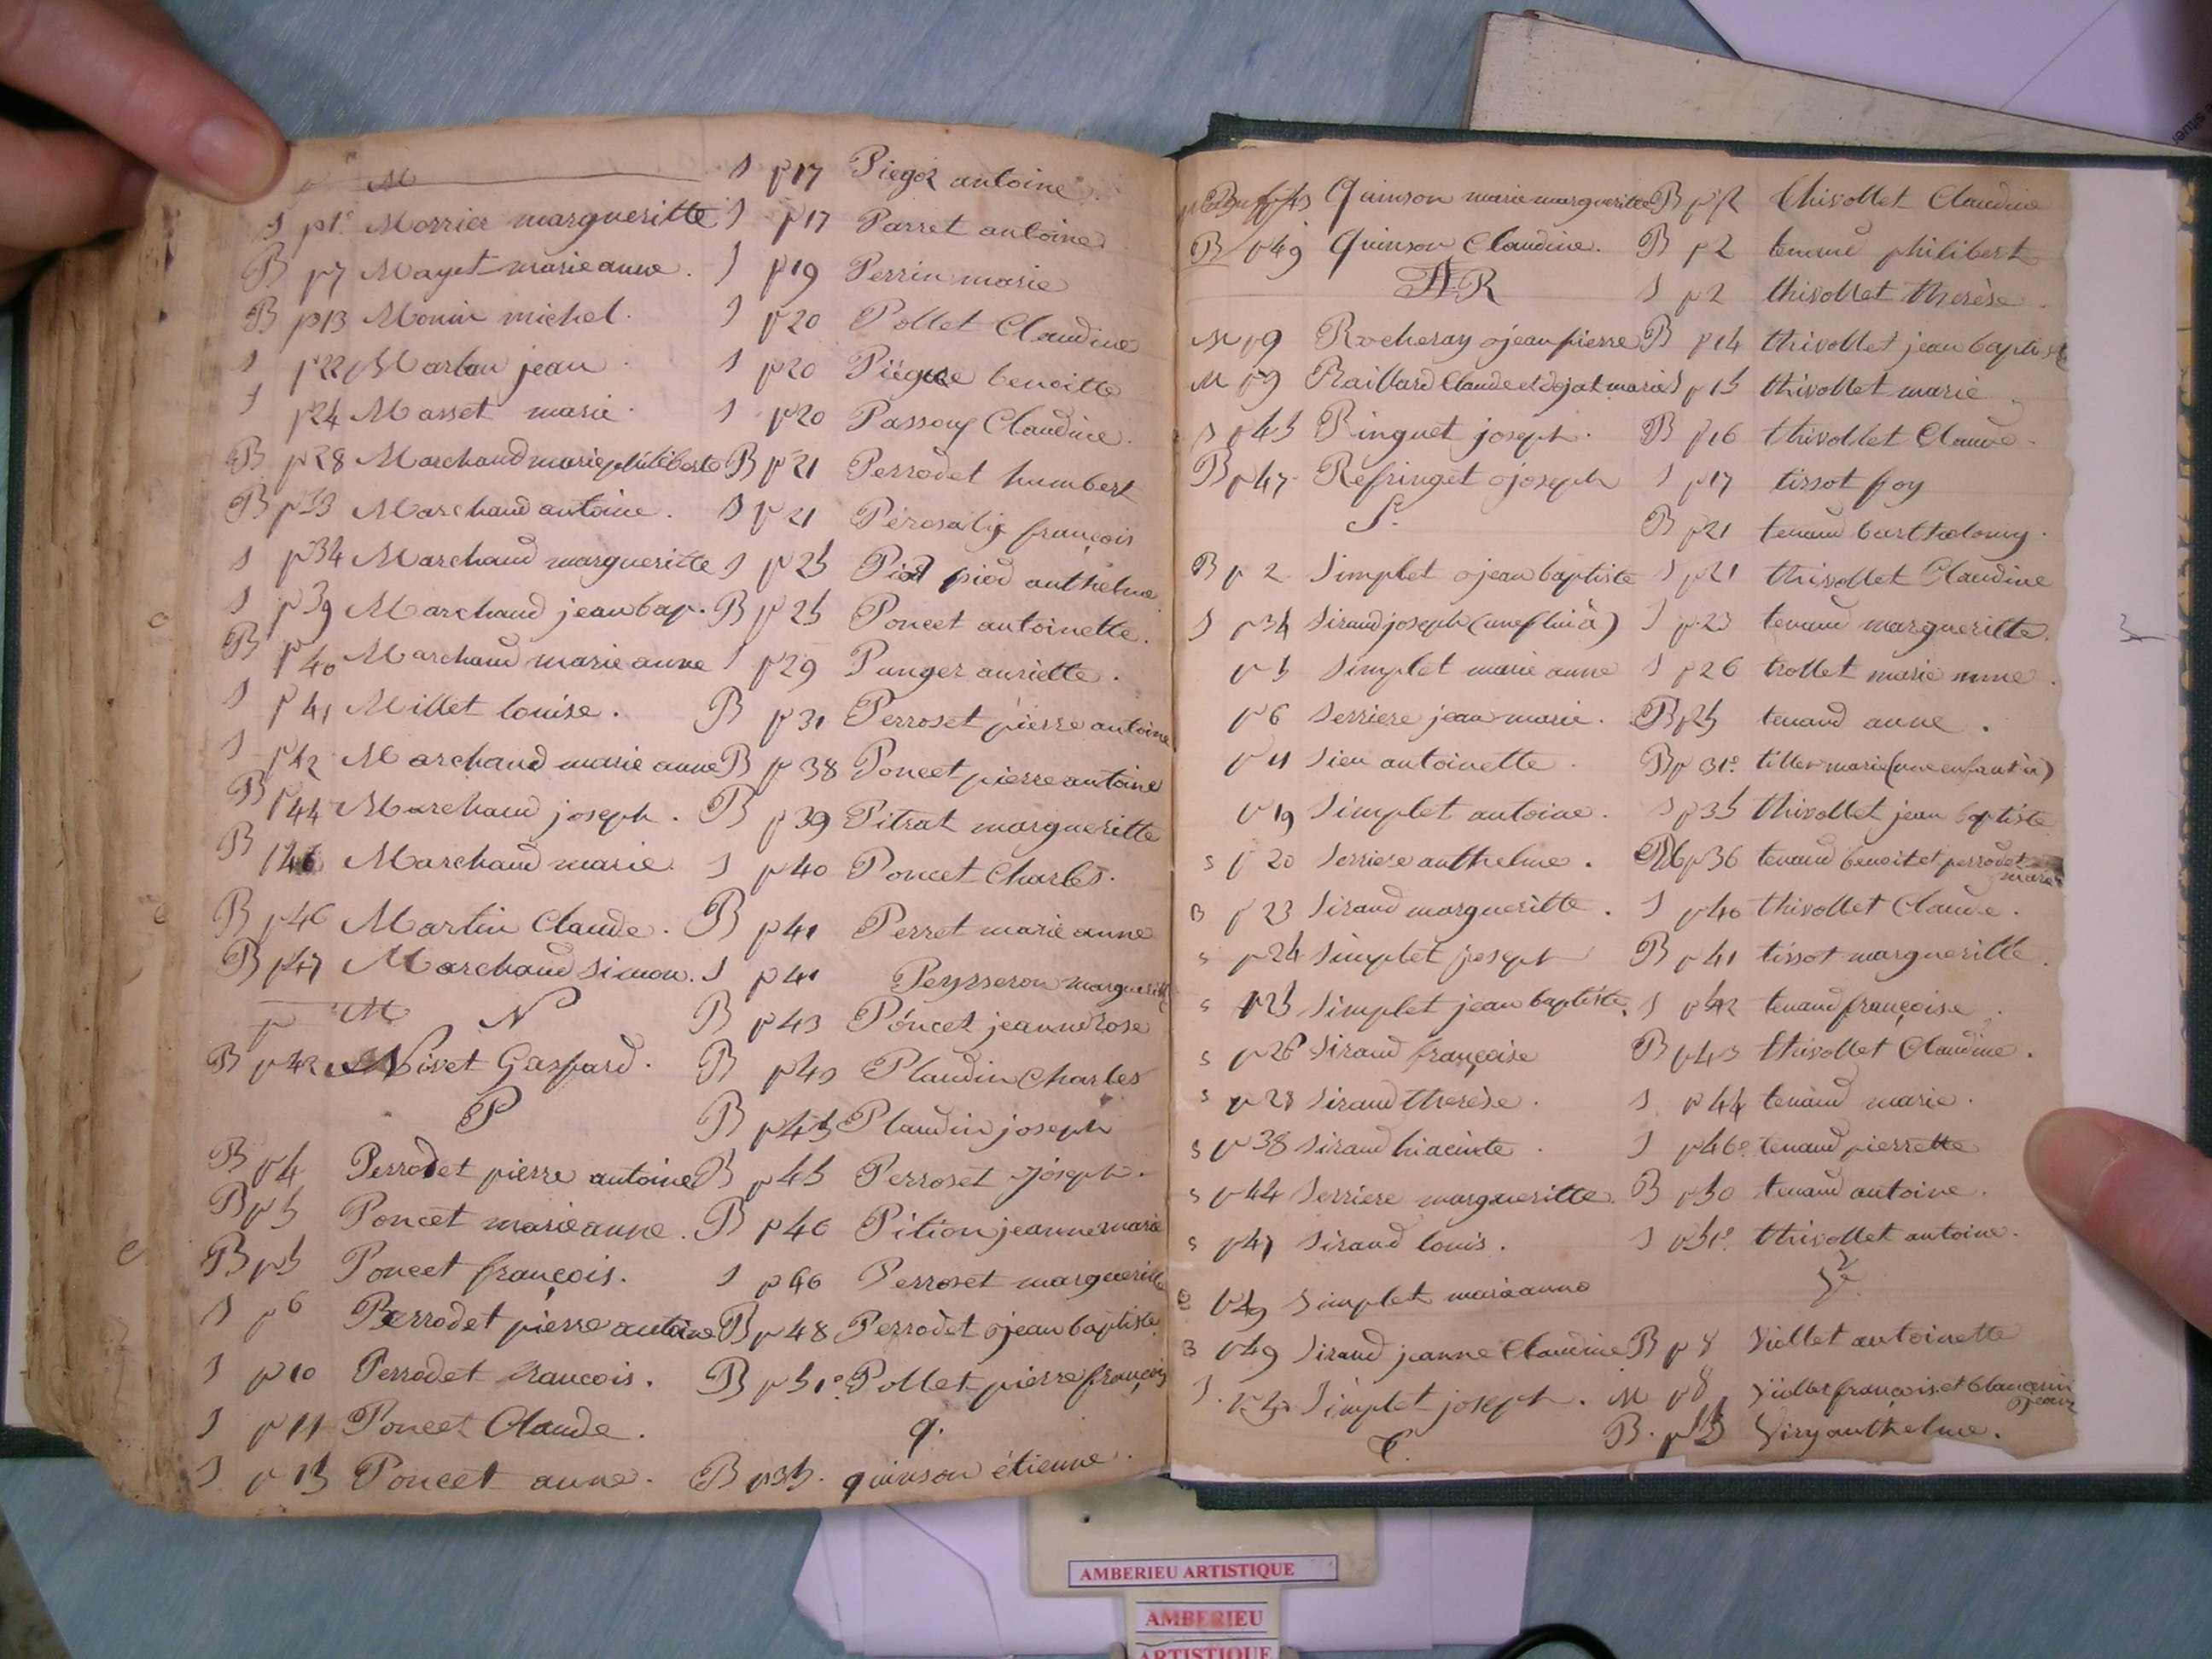 M
S p1° Morrier margueritte
B p7 Mayet marie anne.
B p13 Monin michel.
S p22 Marlan jean.
S p24 Masset marie.
B p28 Marchand marie philiberte
B p33 Marchand antoine.
S p34 Marchand margueritte
S p39 Marchand jean bap.
B p40 Marchand marie anne
S p41 Millet louise.
S p42 Marchand marie anne
B p44 Marchand joseph.
B p46 Marchand marie.
B p46 Martin Claude.
B p47 Marchand simon.
M N
B p42 Nivet Gaspard.
P
B p4 Perrodet pierre antoine
B p5 Poncet marie anne.
B p5 Poncet françois.
S p6 Perrodet pierre antoine
S p10 Perrodet francois.
S p11 Poncet Claude.
S p15 Poncet anne.
S p17 Piegoz antoine
S p17 Parret antoine
S p19 Perrin marie
S p20 Pollet Claudine
S p20 benoitte
S p20 Passouf Claudine.
B p21 Perrodet humbert
S p21 françois
S p25 piod anthelme
B p25 Poncet antoinette.
S p29 Punger auriette.
B p31 Perroset pierre antoine
B p38 Poncet pierre antoine
B p39 Pitrat margueritte
S p40 Poncet Charles.
B p41 Perret marie anne
S p41 Peysseron margueritte
B p43 Poncet jeanne rose
B p43 Plaudin Charles
B p45 Plaudin joseph
B p45 Perroset joseph.
B p46 Pition jeanne marie
S p46 Perroset margueritte
B p48 Perrodet jean baptiste
B p51° Pollet pierre françois
q.
B p35. quinson étienne.
p43 Quinson marie margueritte
B p49 Quinson Claudine.
R
M p9 Rocheray jean pierre
M p9 Raillard Claude et dejat marie
S p45 Ringuet joseph.
B p47 Refringet joseph
S.
B p2 Simplet jean baptiste
S p34 Siraud joseph
p5 Simplet marie anne
p6 Serriere jean marie.
p11 Sieu antoinette.
p19 Simplet antoine.
s p20 Serriere anthelme.
B p23 Siraud margueritte.
s p24 Simplet joseph
s p25 Simplet jean baptiste.
s p26 Siraud françoise
s p28 Siraud therèse.
s p38 Siraud hiacinte.
s p44 Serriere margueritte.
s p47 Siraud louis.
p49 Simplet marie anne
B p49 Siraud jeanne Claudine
S. Simplet joseph.
T.
B p2 thivollet Claudine
B p2 tenand philibert
S p2 thivollet therèse.
B p14 thivollet jean baptiste
S p15 thivollet marie
B p16 thivollet Claude.
S p17 tissot foy
B p21 tenand barthelomy.
S p21 thivollet Claudine
S p23 tenand margueritte.
S p26 trollet marie anne.
B p25 tenand anne.
B p31° tiller marie (une enfant à)
S p35 thivollet jean baptiste
p36 tenand benoit et perrodet
marie
S p40 thivollet Claude.
B p41 tissot margueritte.
S p42 tenand françoise.
B p43 thivollet Claudine.
S p44 tenand marie.
S p46° tenand pierrette
B p50 tenand antoine.
S p51° thivollet antoine.
V.
B p8 Viollet antoinette
M p8 Viollet françois et
B. Viry anthelme.
3
AMBERIEU ARTISTIQUE
AMBERIEU
ARTISTIQUE